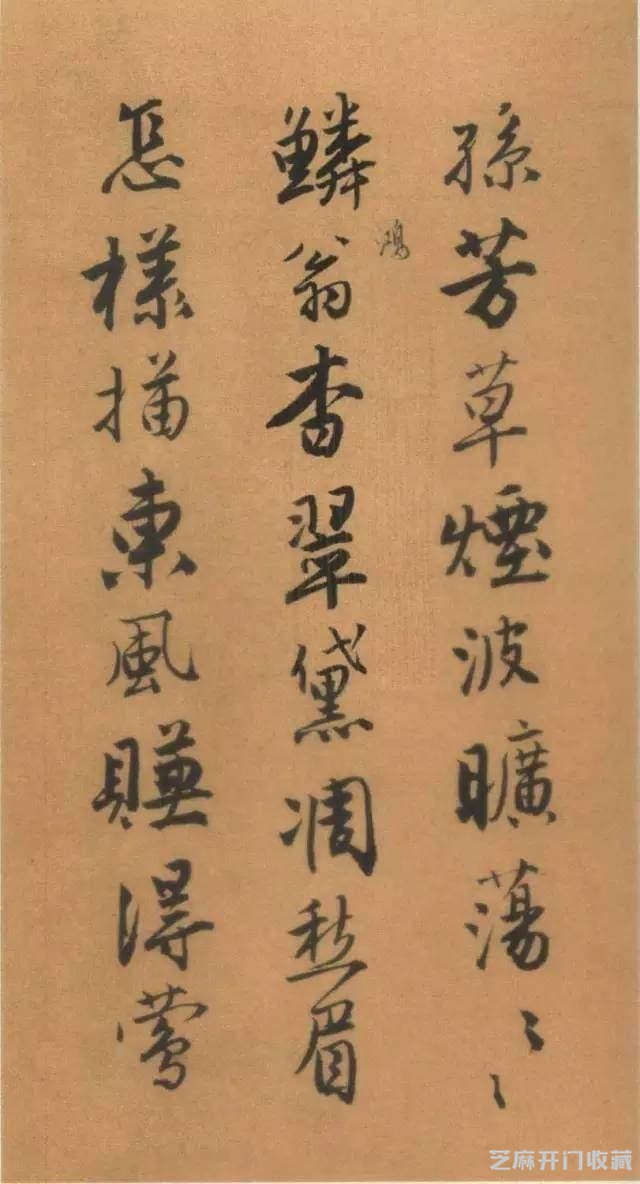 孫芳草煙波曠蕩〻〻
鱗鴻翁杳翠黛凋愁眉
怎樣描東風賺得鶯
芝麻开门收藏